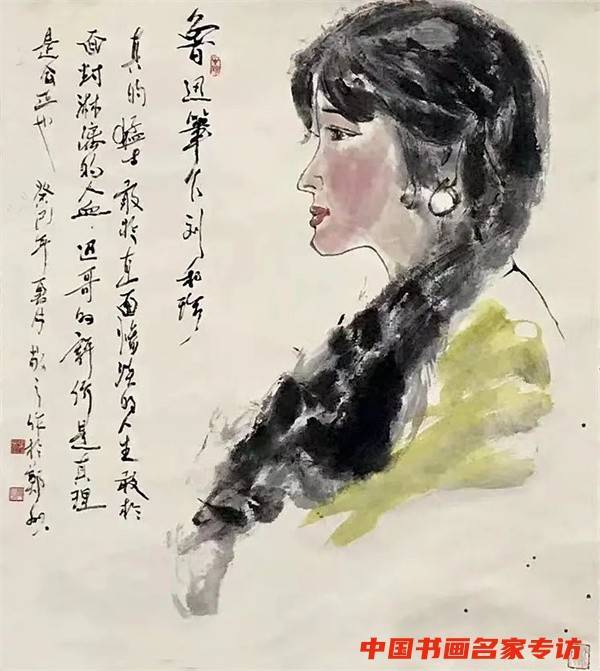 魯迅筆下刘和珍
真的猛士敢於直面惨淡的人生敢於
面对淋漓的人血.迅哥的評价是真理
是公正也 癸巳年夏月敬之作於鄭州
中国书画名家专访